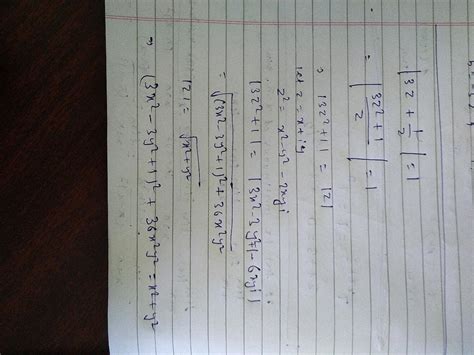 |3z + 1/z| = 1
= |3z²+1 / z| = 1
⇒ |3z²+1| = |z|
let z = x+iy
z² = x²-y² - 2xyi
|3z²+1| = |3x²-3y²+1 - 6xyi|
= √(3x²-3y²+1)² + 36x²y²
|z| = √x²+y²
⇒ (3x²-3y²+1)² + 36x²y² = x²+y²